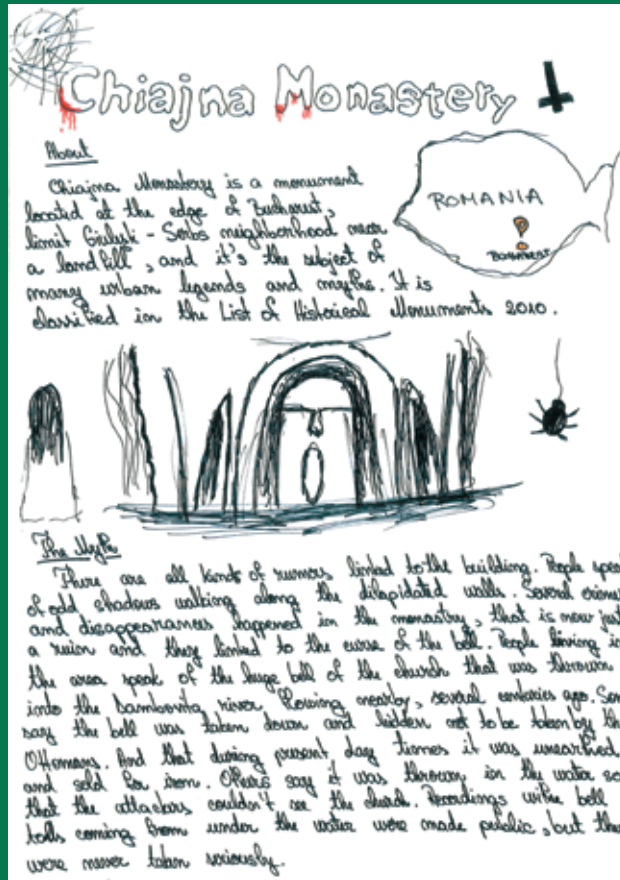 Chiajna Monastery
About
Chiajna Monastery is a monument
located at the edge of Bucharest,
limit Giulești - Sârbi neighborhood near
a landfill, and it's the subject of
many urban legends and myths. It is
classified in the List of Historical Monuments 2010.
ROMANIA
BUCHAREST
The Myth
There are all kinds of rumors linked to the building. People speak
of odd shadows walking along the dilapidated walls. Several crimes
and disappearances happened in the monastry, that is now just
a ruin and they linked to the curse of the bell. People living in
the area speak of the huge bell of the church that was thrown
into the Dambovita river flowing nearby, several centuries ago. Some
say the bell was taken down and hidden not to be taken by the
Ottomans. And that during present day times it was unearthed
and sold for iron. Others say it was thrown in the water so
that the attackers couldn't see the church. Recordings with bell
tolls coming from under the water were made public, but they
were never taken seriously.